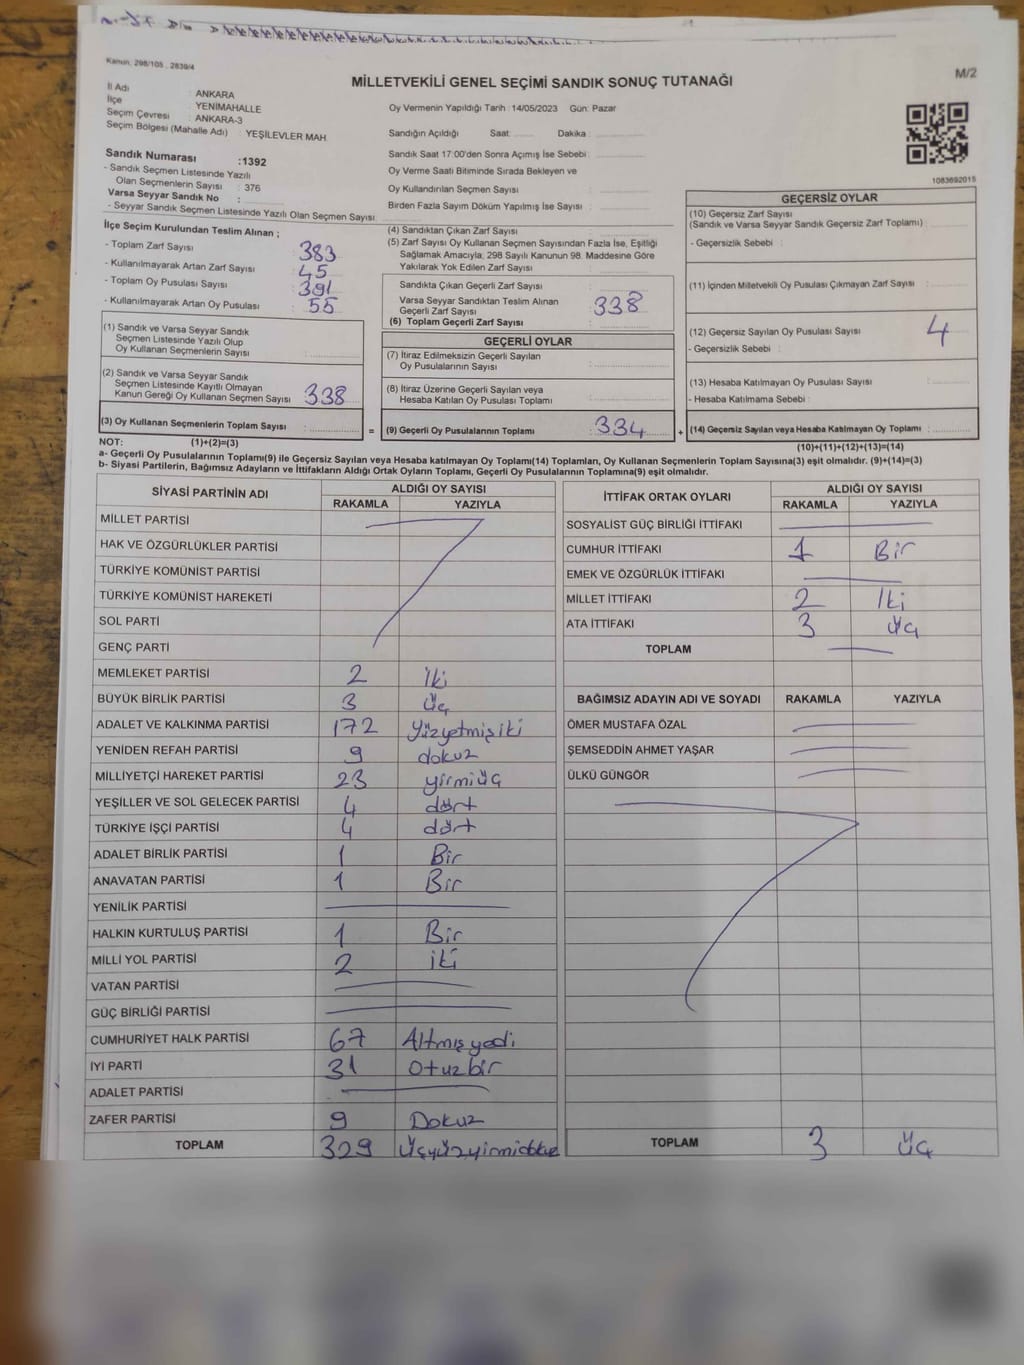 Kanun, 298/105 , 2839/4
M/2
MİLLETVEKİLİ GENEL SEÇİMİ SANDIK SONUÇ TUTANAĞI
İl Adı : ANKARA
İlçe : YENİMAHALLE
Seçim Çevresi : ANKARA-3
Seçim Bölgesi (Mahalle Adı) : YEŞİLEVLER MAH.
Oy Vermenin Yapıldığı Tarih :14/05/2023 Gün: Pazar
Sandığın Açıldığı Saat: Dakika :
Sandık Saat 17:00'den Sonra Açımış İse Sebebi :
Oy Verme Saati Bitiminde Sırada Bekleyen ve
Oy Kullandırılan Seçmen Sayısı :
Birden Fazla Sayım Döküm Yapılmış İse Sayısı :
1083692015
Sandık Numarası :1392
- Sandık Seçmen Listesinde Yazılı
Olan Seçmenlerin Sayısı : 376
Varsa Seyyar Sandık No :
- Seyyar Sandık Seçmen Listesinde Yazılı Olan Seçmen Sayısı
İlçe Seçim Kurulundan Teslim Alınan ;
- Toplam Zarf Sayısı : 383
- Kullanılmayarak Artan Zarf Sayısı : 45
- Toplam Oy Pusulası Sayısı : 391
- Kullanılmayarak Artan Oy Pusulası : 55
(1) Sandık ve Varsa Seyyar Sandık
Seçmen Listesinde Yazılı Olup
Oy Kullanan Seçmenlerin Sayısı :
(2) Sandık ve Varsa Seyyar Sandık
Seçmen Listesinde Kayıtlı Olmayan
Kanun Gereği Oy Kullanan Seçmen Sayısı : 338
(3) Oy Kullanan Seçmenlerin Toplam Sayısı : =
(4) Sandıktan Çıkan Zarf Sayısı :
(5) Zarf Sayısı Oy Kullanan Seçmen Sayısından Fazla İse, Eşitliği
Sağlamak Amacıyla, 298 Sayılı Kanunun 98. Maddesine Göre
Yakılarak Yok Edilen Zarf Sayısı :
Sandıkta Çıkan Geçerli Zarf Sayısı :
Varsa Seyyar Sandıktan Teslim Alınan
Geçerli Zarf Sayısı : 338
(6) Toplam Geçerli Zarf Sayısı :
GEÇERLİ OYLAR
(7) İtiraz Edilmeksizin Geçerli Sayılan
Oy Pusulalarının Sayısı :
(8) İtiraz Üzerine Geçerli Sayılan veya
Hesaba Katılan Oy Pusulası Toplamı :
(9) Geçerli Oy Pusulalarının Toplamı : 334 +
GEÇERSİZ OYLAR
(10) Geçersiz Zarf Sayısı
(Sandık ve Varsa Seyyar Sandık Geçersiz Zarf Toplamı) :
- Geçersizlik Sebebi :
(11) İçinden Milletvekili Oy Pusulası Çıkmayan Zarf Sayısı :
(12) Geçersiz Sayılan Oy Pusulası Sayısı : 4
- Geçersizlik Sebebi :
(13) Hesaba Katılmayan Oy Pusulası Sayısı :
- Hesaba Katılmama Sebebi :
(14) Geçersiz Sayılan veya Hesaba Katılmayan Oy Toplamı :
NOT: (1)+(2)=(3) (10)+(11)+(12)+(13)=(14)
a- Geçerli Oy Pusulalarının Toplamı(9) ile Geçersiz Sayılan veya Hesaba katılmayan Oy Toplamı(14) Toplamları, Oy Kullanan Seçmenlerin Toplam Sayısına(3) eşit olmalıdır. (9)+(14)=(3)
b- Siyasi Partilerin, Bağımsız Adayların ve İttifakların Aldığı Ortak Oyların Toplamı, Geçerli Oy Pusulalarının Toplamına(9) eşit olmalıdır.
SİYASİ PARTİNİN ADI ALDIĞI OY SAYISI
RAKAMLA YAZIYLA
MİLLET PARTİSİ
HAK VE ÖZGÜRLÜKLER PARTİSİ
TÜRKİYE KOMÜNİST PARTİSİ
TÜRKİYE KOMÜNİST HAREKETİ
SOL PARTİ
GENÇ PARTİ
MEMLEKET PARTİSİ 2 iki
BÜYÜK BİRLİK PARTİSİ 3 üç
ADALET VE KALKINMA PARTİSİ 172 Yüzyetmişiki
YENİDEN REFAH PARTİSİ 9 dokuz
MİLLİYETÇİ HAREKET PARTİSİ 23 yirmiüç
YEŞİLLER VE SOL GELECEK PARTİSİ 4 dört
TÜRKİYE İŞÇİ PARTİSİ 4 dört
ADALET BİRLİK PARTİSİ 1 Bir
ANAVATAN PARTİSİ 1 Bir
YENİLİK PARTİSİ
HALKIN KURTULUŞ PARTİSİ 1 Bir
MİLLİ YOL PARTİSİ 2 iki
VATAN PARTİSİ
GÜÇ BİRLİĞİ PARTİSİ
CUMHURİYET HALK PARTİSİ 67 Altmışyedi
İYİ PARTİ 31 Otuzbir
ADALET PARTİSİ
ZAFER PARTİSİ 9 Dokuz
TOPLAM 329
İTTİFAK ORTAK OYLARI ALDIĞI OY SAYISI
RAKAMLA YAZIYLA
SOSYALİST GÜÇ BİRLİĞİ İTTİFAKI
CUMHUR İTTİFAKI 1 Bir
EMEK VE ÖZGÜRLÜK İTTİFAKI
MİLLET İTTİFAKI 2 İki
ATA İTTİFAKI 3 üç
TOPLAM
BAĞIMSIZ ADAYIN ADI VE SOYADI RAKAMLA YAZIYLA
ÖMER MUSTAFA ÖZAL
ŞEMSEDDİN AHMET YAŞAR
ÜLKÜ GÜNGÖR
TOPLAM 3 üç